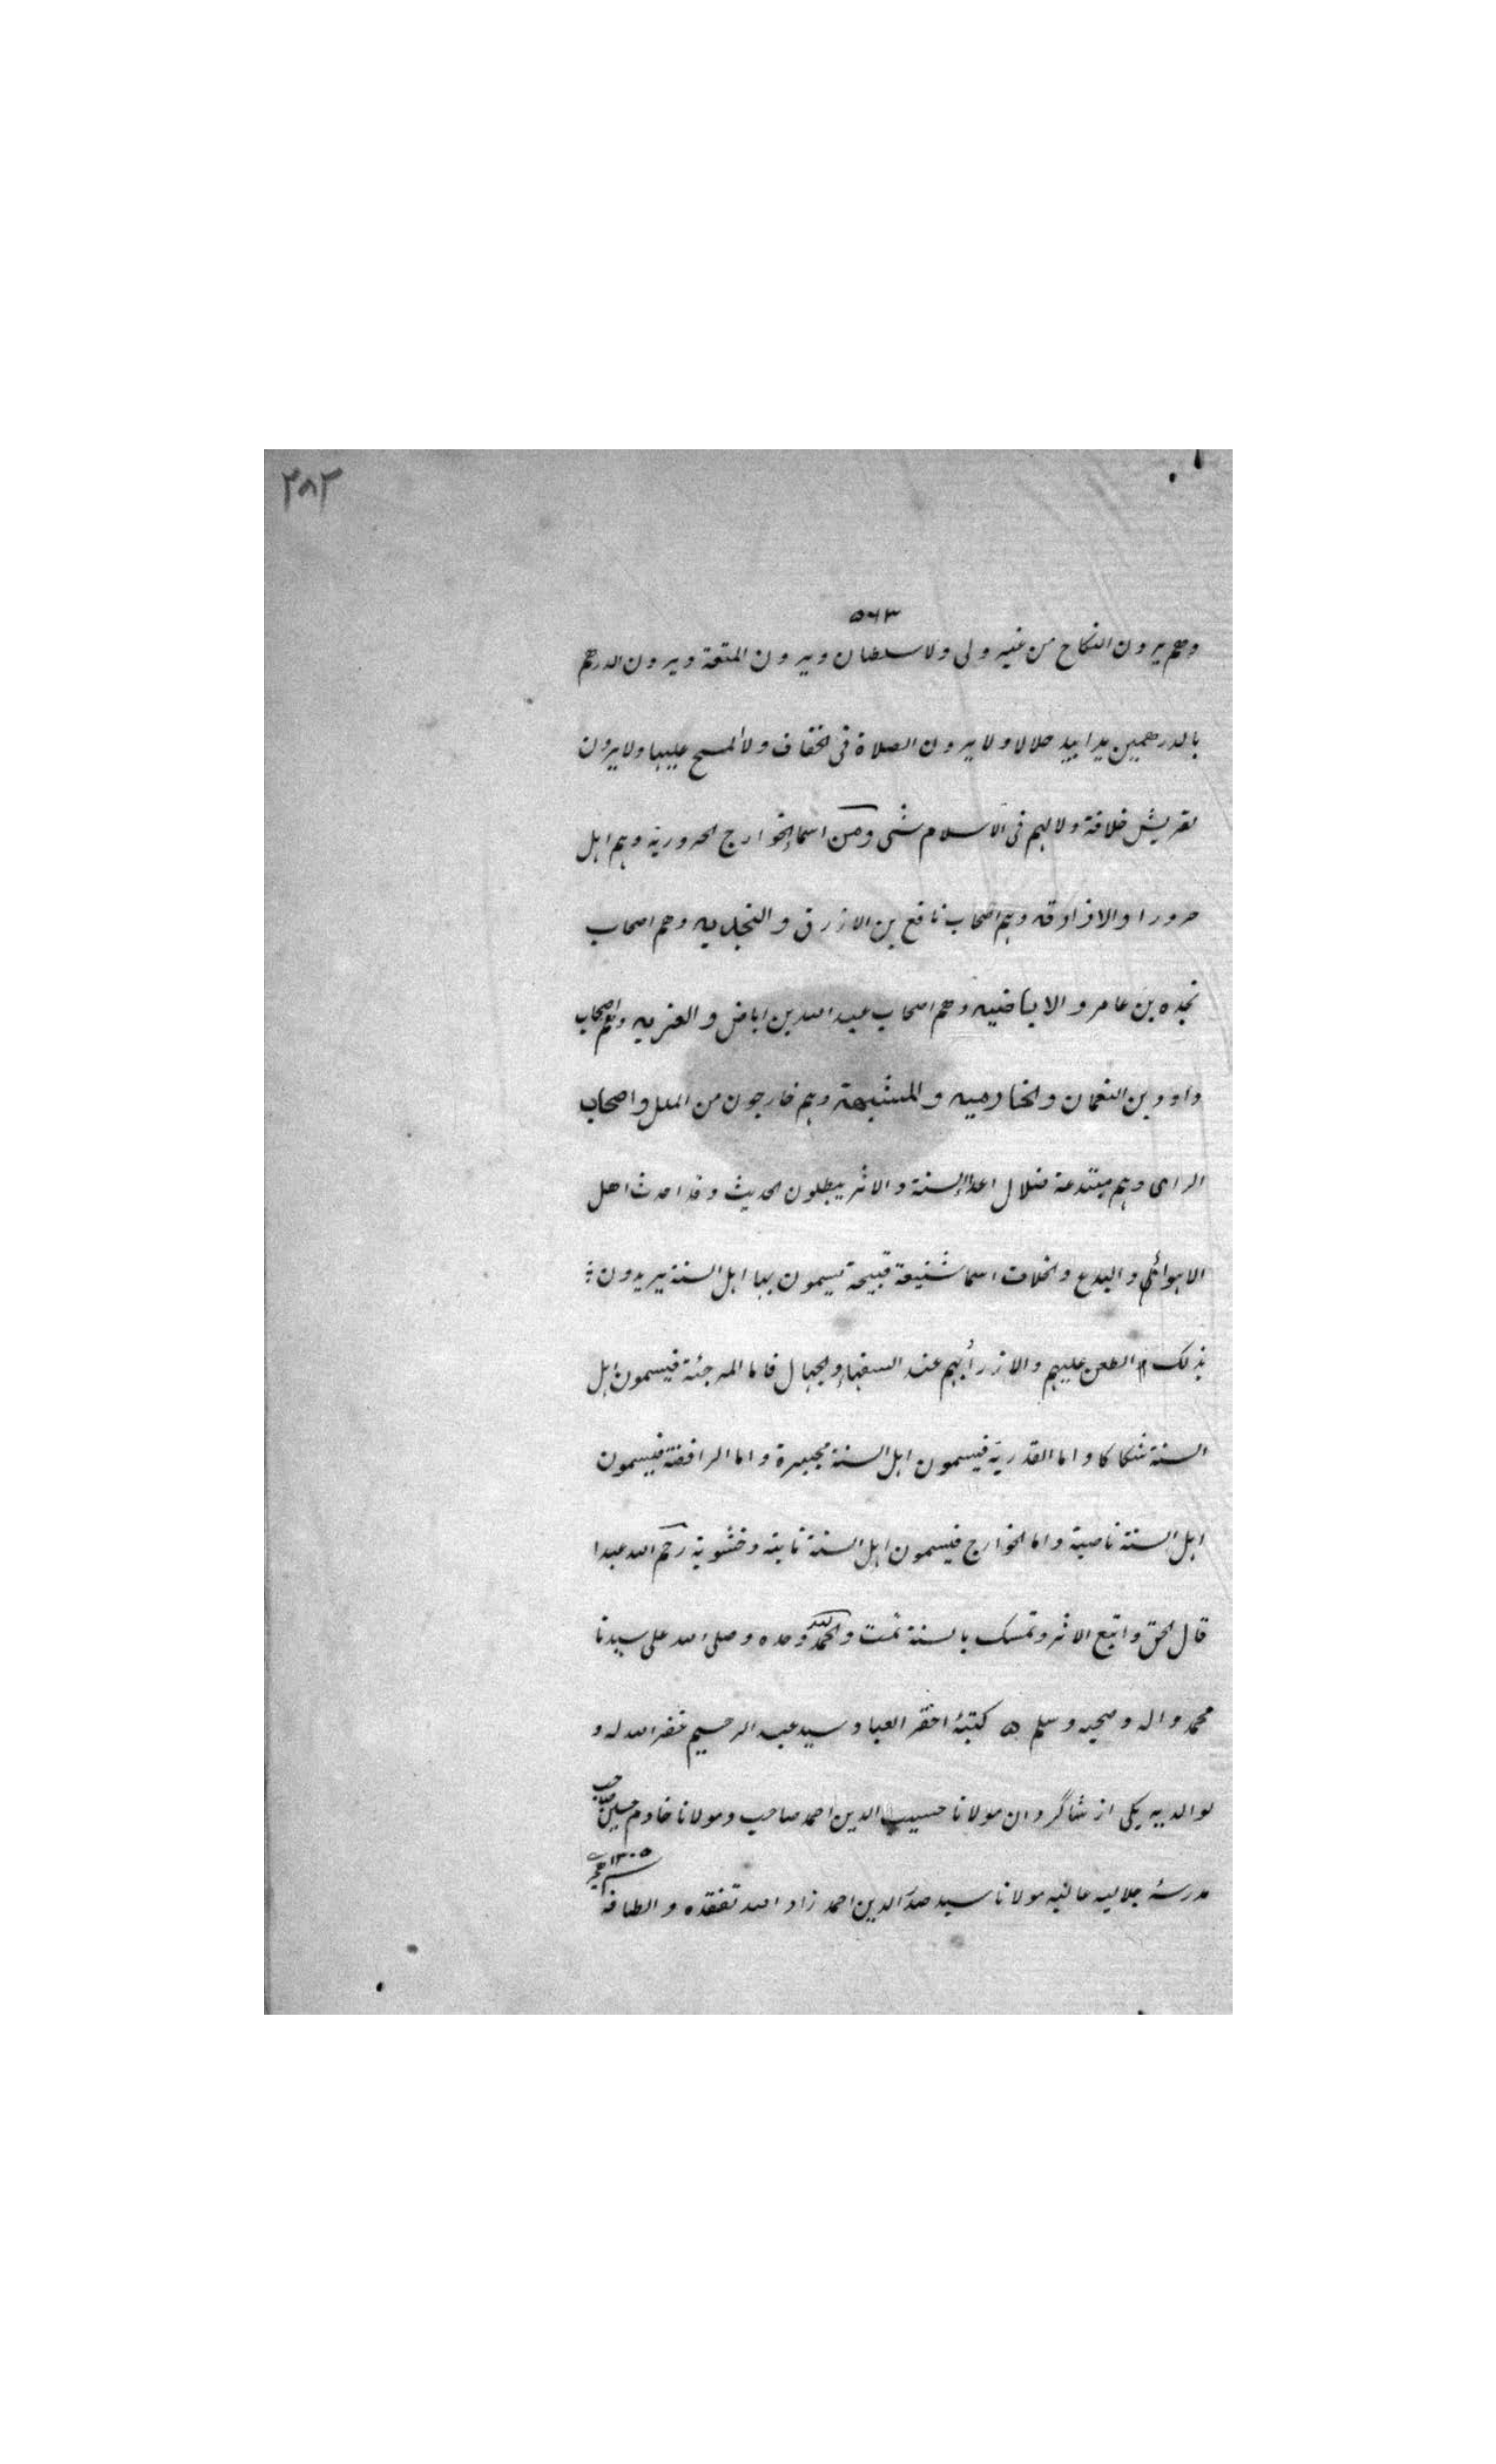 ٢٨٢
٥٦٣
وهم يرون النكاح من غير ولى ولا سلطان ويرون المتعة ويرون الدرهم
بالدرهمين يدا بيد حلالا ولا يرون الصلاة فى الخفاف ولا المسح عليها ولا يرون
لقريش خلافة ولا لهم فى الاسلام شى ومن اسما الخوارج الحرورية وهم اهل
حرورا والازارقه وهم اصحاب نافع بن الازرق والنجديه وهم اصحاب
نجده بن عامر والاباضيه وهم اصحاب عبد الله بن اباض والعنريه وهم اصحاب
داوود بن النعمان والخازميه والمشبهة وهم خارجون من الملل واصحاب
الراى وهم مبتدعة ضلال اعدا السنة والاثر يبطلون الحديث وقد احدث اهل
الاهوائى والبدع والخلاف اسما شنيعة قبيحة يسمون بها اهل السنة يريدون
بذلك الطعن عليهم والازرأ بهم عند السفهاء والجهال فاما المرجئة فيسمون اهل
السنة شكاكا واما القدرية فيسمون اهل السنة مجبرة واما الرافضة فيسمون
اهل السنة ناصبة واما الخوارج فيسمون اهل السنة نابته وحشوية رحم الله عبدا
قال الحق واتبع الاثر وتمسك بالسنة تمت والحمد لله وحده وصلى الله على سيدنا
محمد واله وصحبه وسلم كتبهٔ احقر العباد سيد عبد الرحيم غفر الله له و
لوالديه يكى از شاگردان مولانا حسيب الدين احمد صاحب ومولانا خادم حسين صاحب
مدرسهٔ جلاليه عاليه مولانا سيد صدر الدين احمد زاد الله تفقده والطافه
سنه ١٣٠٥ هجرى